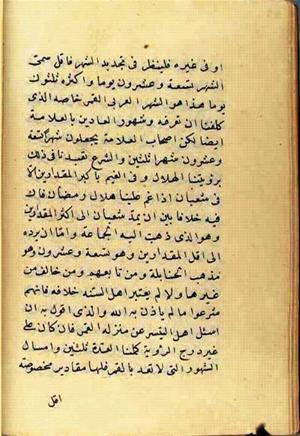 او فى غيره فلينظر فى تجديد الشهر فاقل سمى
الشهر تسعة وعشرون يوما واكثره ثلثون
يوما هذا هو الشهر العربى القمرى خاصة الذى
كلفنا ان نعرفه وشهور العادين بالعلامة
ايضا لكن اصحاب العلامة يجعلون شهرا تسعة
وعشرون وشهرا ثلثين والشرع تعبدنا فى ذلك
برؤيتنا الهلال وفى الغيم باكبر المقدارين الا
فى شعبان اذا غم علينا هلال رمضان فان
فيه خلافا بين ان نمد شعبان الى اكثر المقدارين
وهو الذى ذهبت اليه الجماعة واما ان نرده
الى اقل المقدارين وهو تسعة وعشرون وهو
مذهب الحنابلة ومن تابعهم ومن خالف من
غير هؤلاء لم يعتبر اهل السنة خلافه فانهم
شرعوا ما لم ياذن به الله والذى اقول به ان
اسئل اهل التيسير عن منزلة القمر فان كان على
غير درج الرؤية كملنا العدة ثلثين واما
الشهور التى لا تعد بالقمر فلها مقادير مخصوصة
اقل